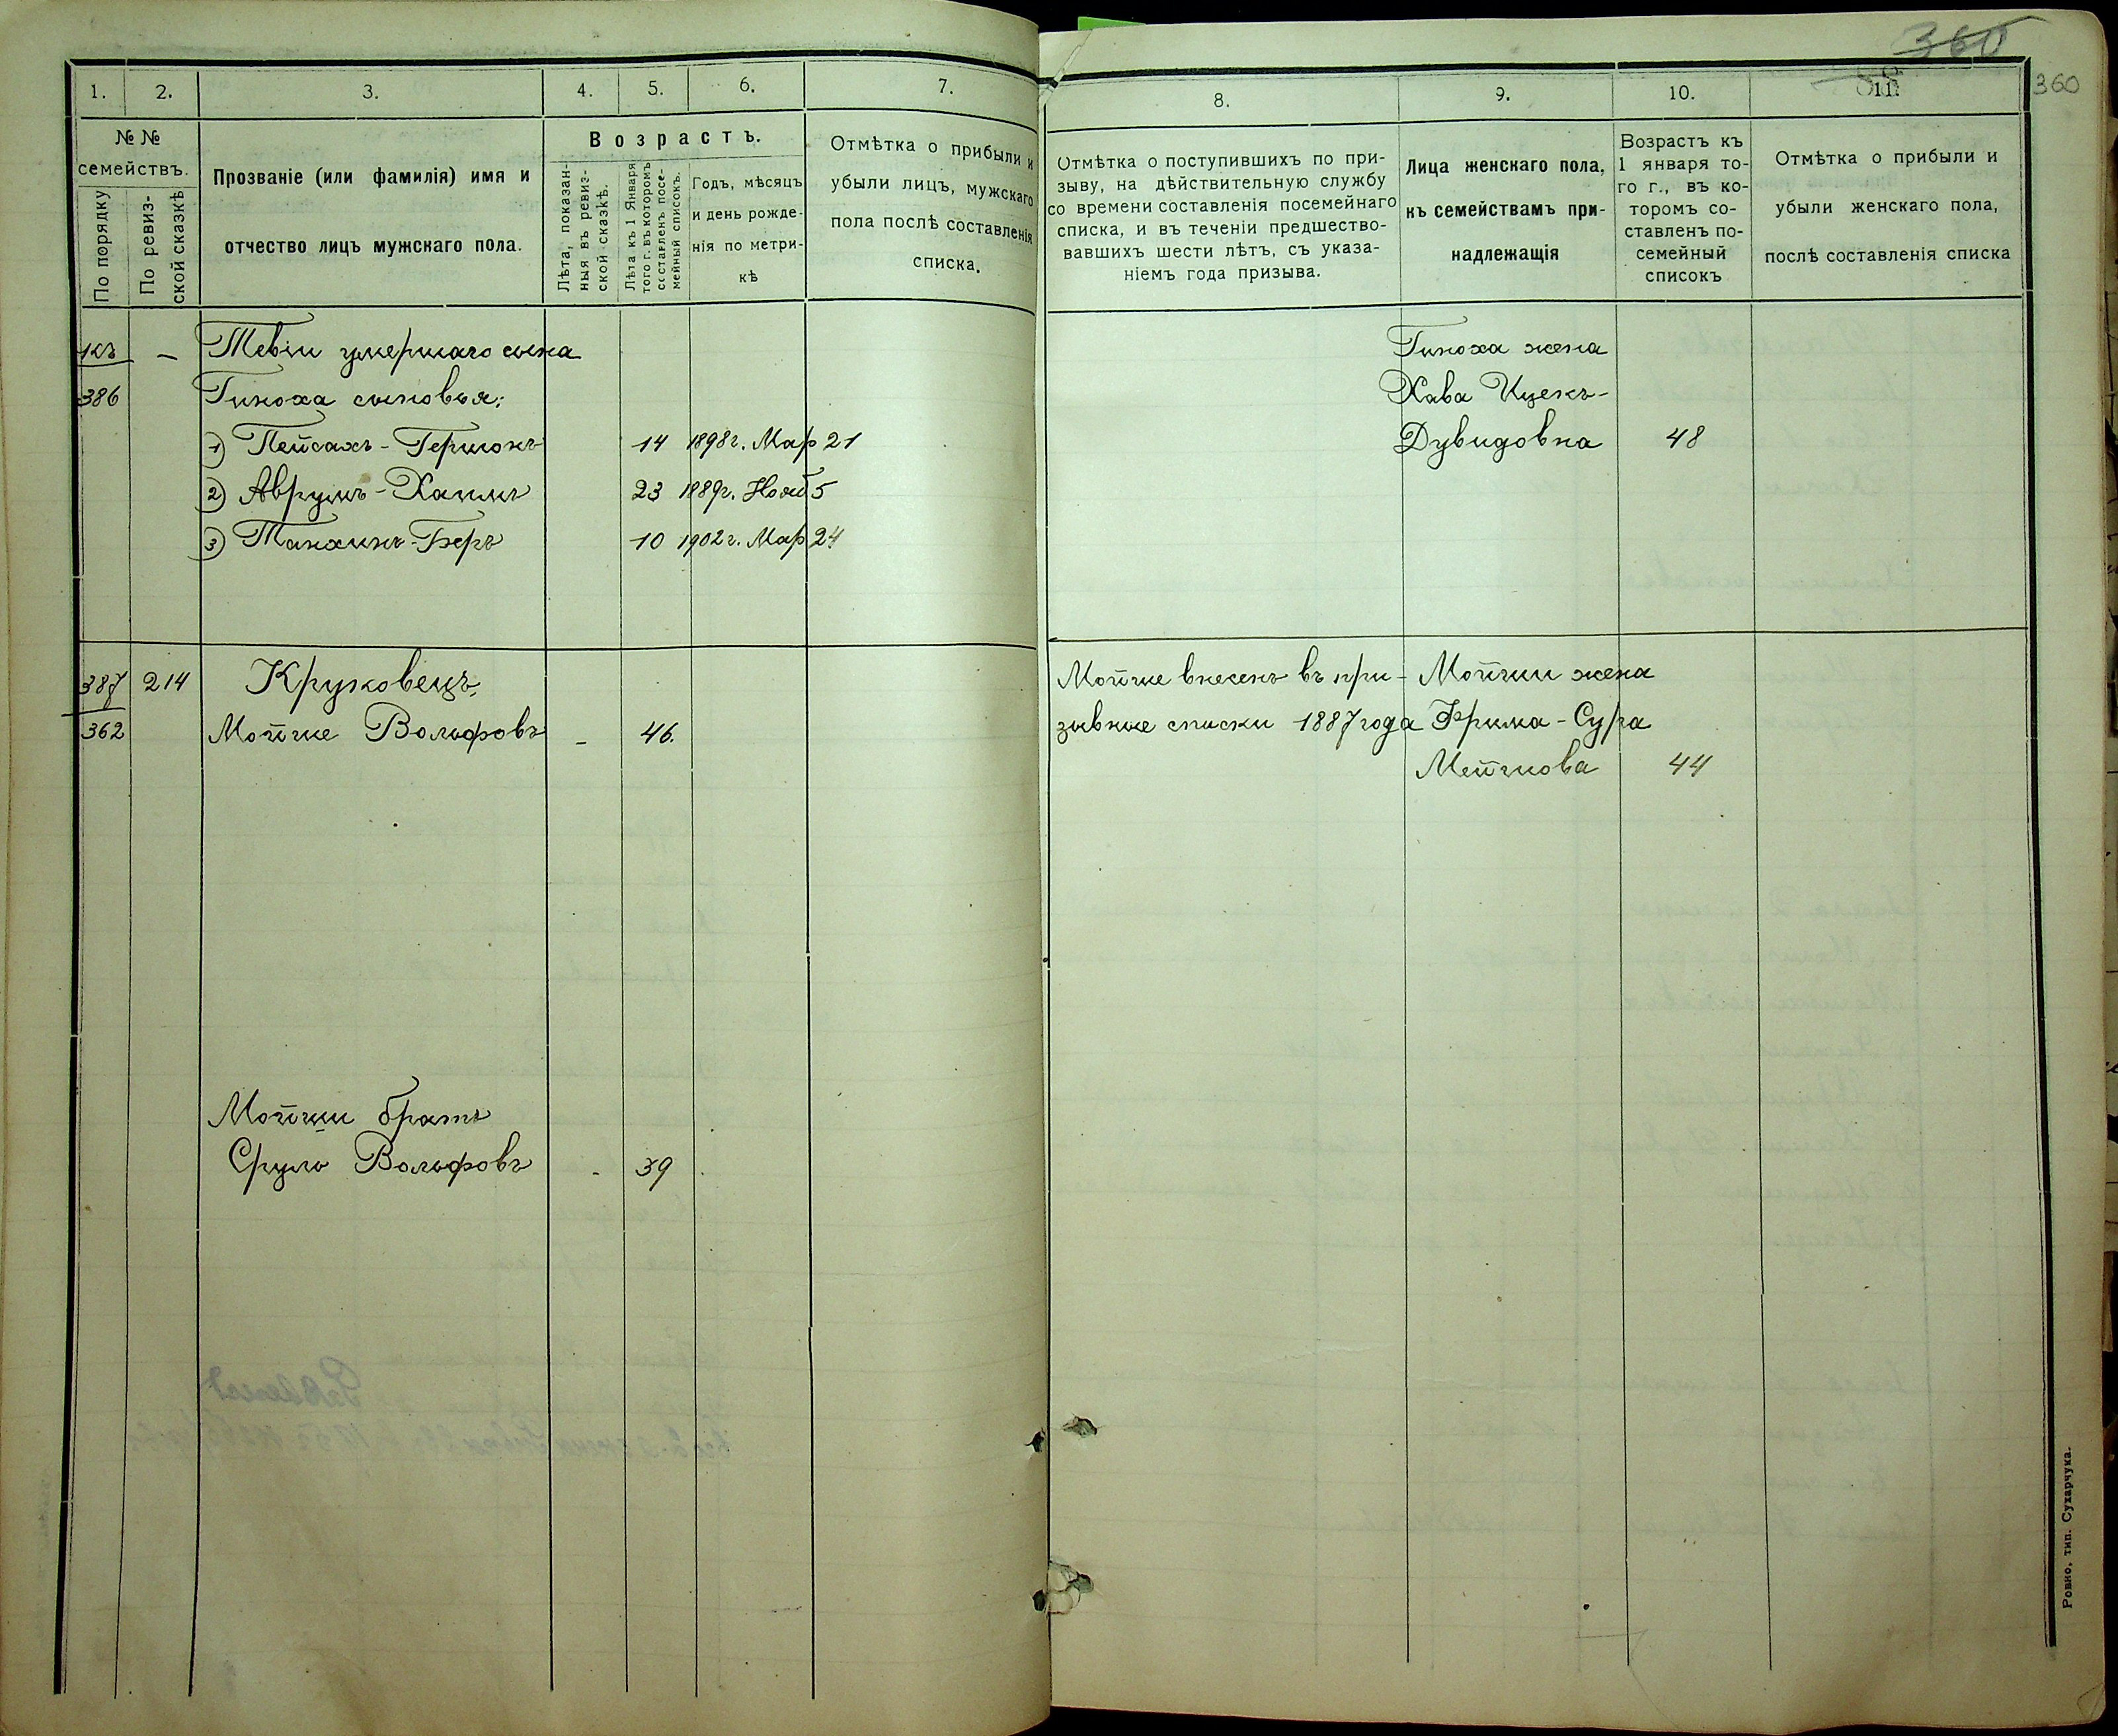 360
360
1.
2.
3.
4.
5.
6.
7.
№ №
семействъ.
По порядку
По ревиз-
ской сказкѣ
Прозваніе (или фамилія) имя и
отчество лицъ мужскаго пола.
Возрастъ.
Лѣта, показан-
ныя въ ревиз-
ской сказкѣ.
Лѣта къ 1 Января
того г. въ которомъ
составленъ посе-
мейный списокъ.
Годъ, мѣсяцъ
и день рожде-
нія по метри-
кѣ
Отмѣтка о прибыли и
убыли лицъ, мужскаго
пола послѣ составленія
списка.
къ — Тевіи умершаго сына
386 Гиноха сыновья:
1) Пейсахъ-Гершонъ 14 1898г. Мар 21
2) Аврумъ-Хаимъ 23 1889г. Нояб 5
3) Танхинъ-Беръ 10 1902г. Мар 24
387 214 Круковецъ,
362 Мойше Вольфовъ - 46.
Мойши братъ
Сруль Вольфовъ - 39
8.
9.
10.
11.
Отмѣтка о поступившихъ по при-
зыву, на дѣйствительную службу
со времени составленія посемейнаго
списка, и въ теченіи предшество-
вавшихъ шести лѣтъ, съ указа-
ніемъ года призыва.
Лица женскаго пола,
къ семействамъ при-
надлежащія
Возрастъ къ
1 января то-
го г., въ ко-
торомъ со-
ставленъ по-
семейный
списокъ
Отмѣтка о прибыли и
убыли женскаго пола,
послѣ составленія списка
Гиноха жена
Хава Ицекъ-
Дувидовна 48
Мойше внесенъ въ при- Мойши жена
зывные списки 1887 года Фрима-Сура
Мейчнова 44
Ровно, тип. Сухарчука.